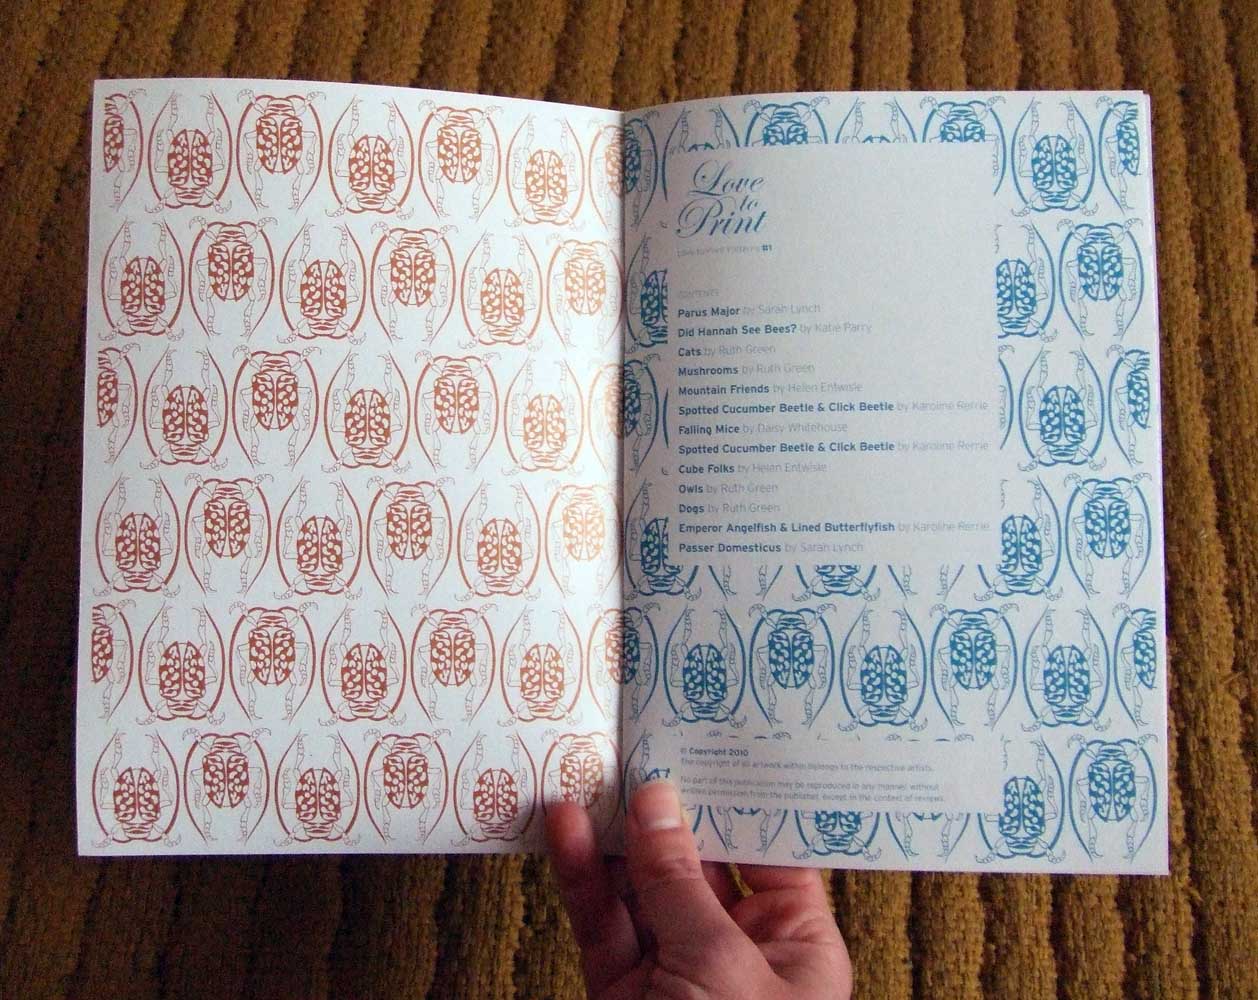 Love
to
Print
Love to Print Patterns #1
CONTENTS
Parus Major by Sarah Lynch
Did Hannah See Bees? by Katie Parry
Cats by Ruth Green
Mushrooms by Ruth Green
Mountain Friends by Helen Entwisle
Spotted Cucumber Beetle & Click Beetle by Karoline Rerrie
Falling Mice by Daisy Whitehouse
Spotted Cucumber Beetle & Click Beetle by Karoline Rerrie
Cube Folks by Helen Entwisle
Owls by Ruth Green
Dogs by Ruth Green
Emperor Angelfish & Lined Butterflyfish by Karoline Rerrie
Passer Domesticus by Sarah Lynch
© Copyright 2010
The copyright of all artwork within belongs to the respective artists.
No part of this publication may be reproduced in any manner without
written permission from the publisher, except in the context of reviews.